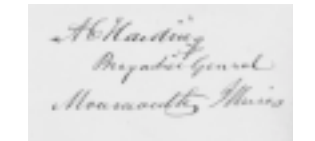 A C Harding
Brigadier General
Monmouth, Illinois